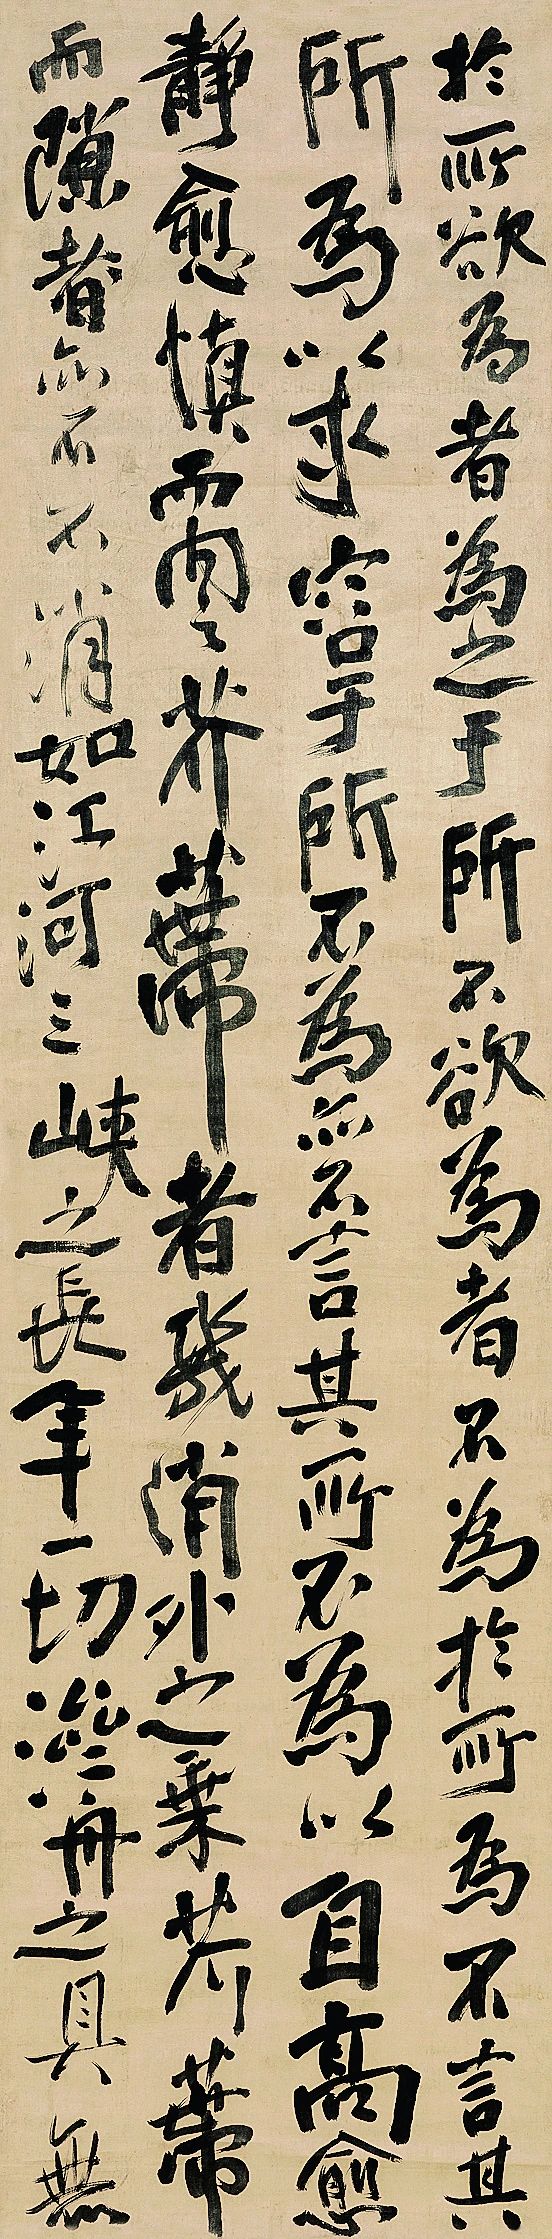 於所欲為者為之于所不欲為者不為於所為不言其
所為以求容于所不為亦不言其所不為以自高愈
靜愈慎雲芥蔕者幾消外之乗芥蔕
而隙者亦不不消如江河三峽之長年一切濟舟之具無